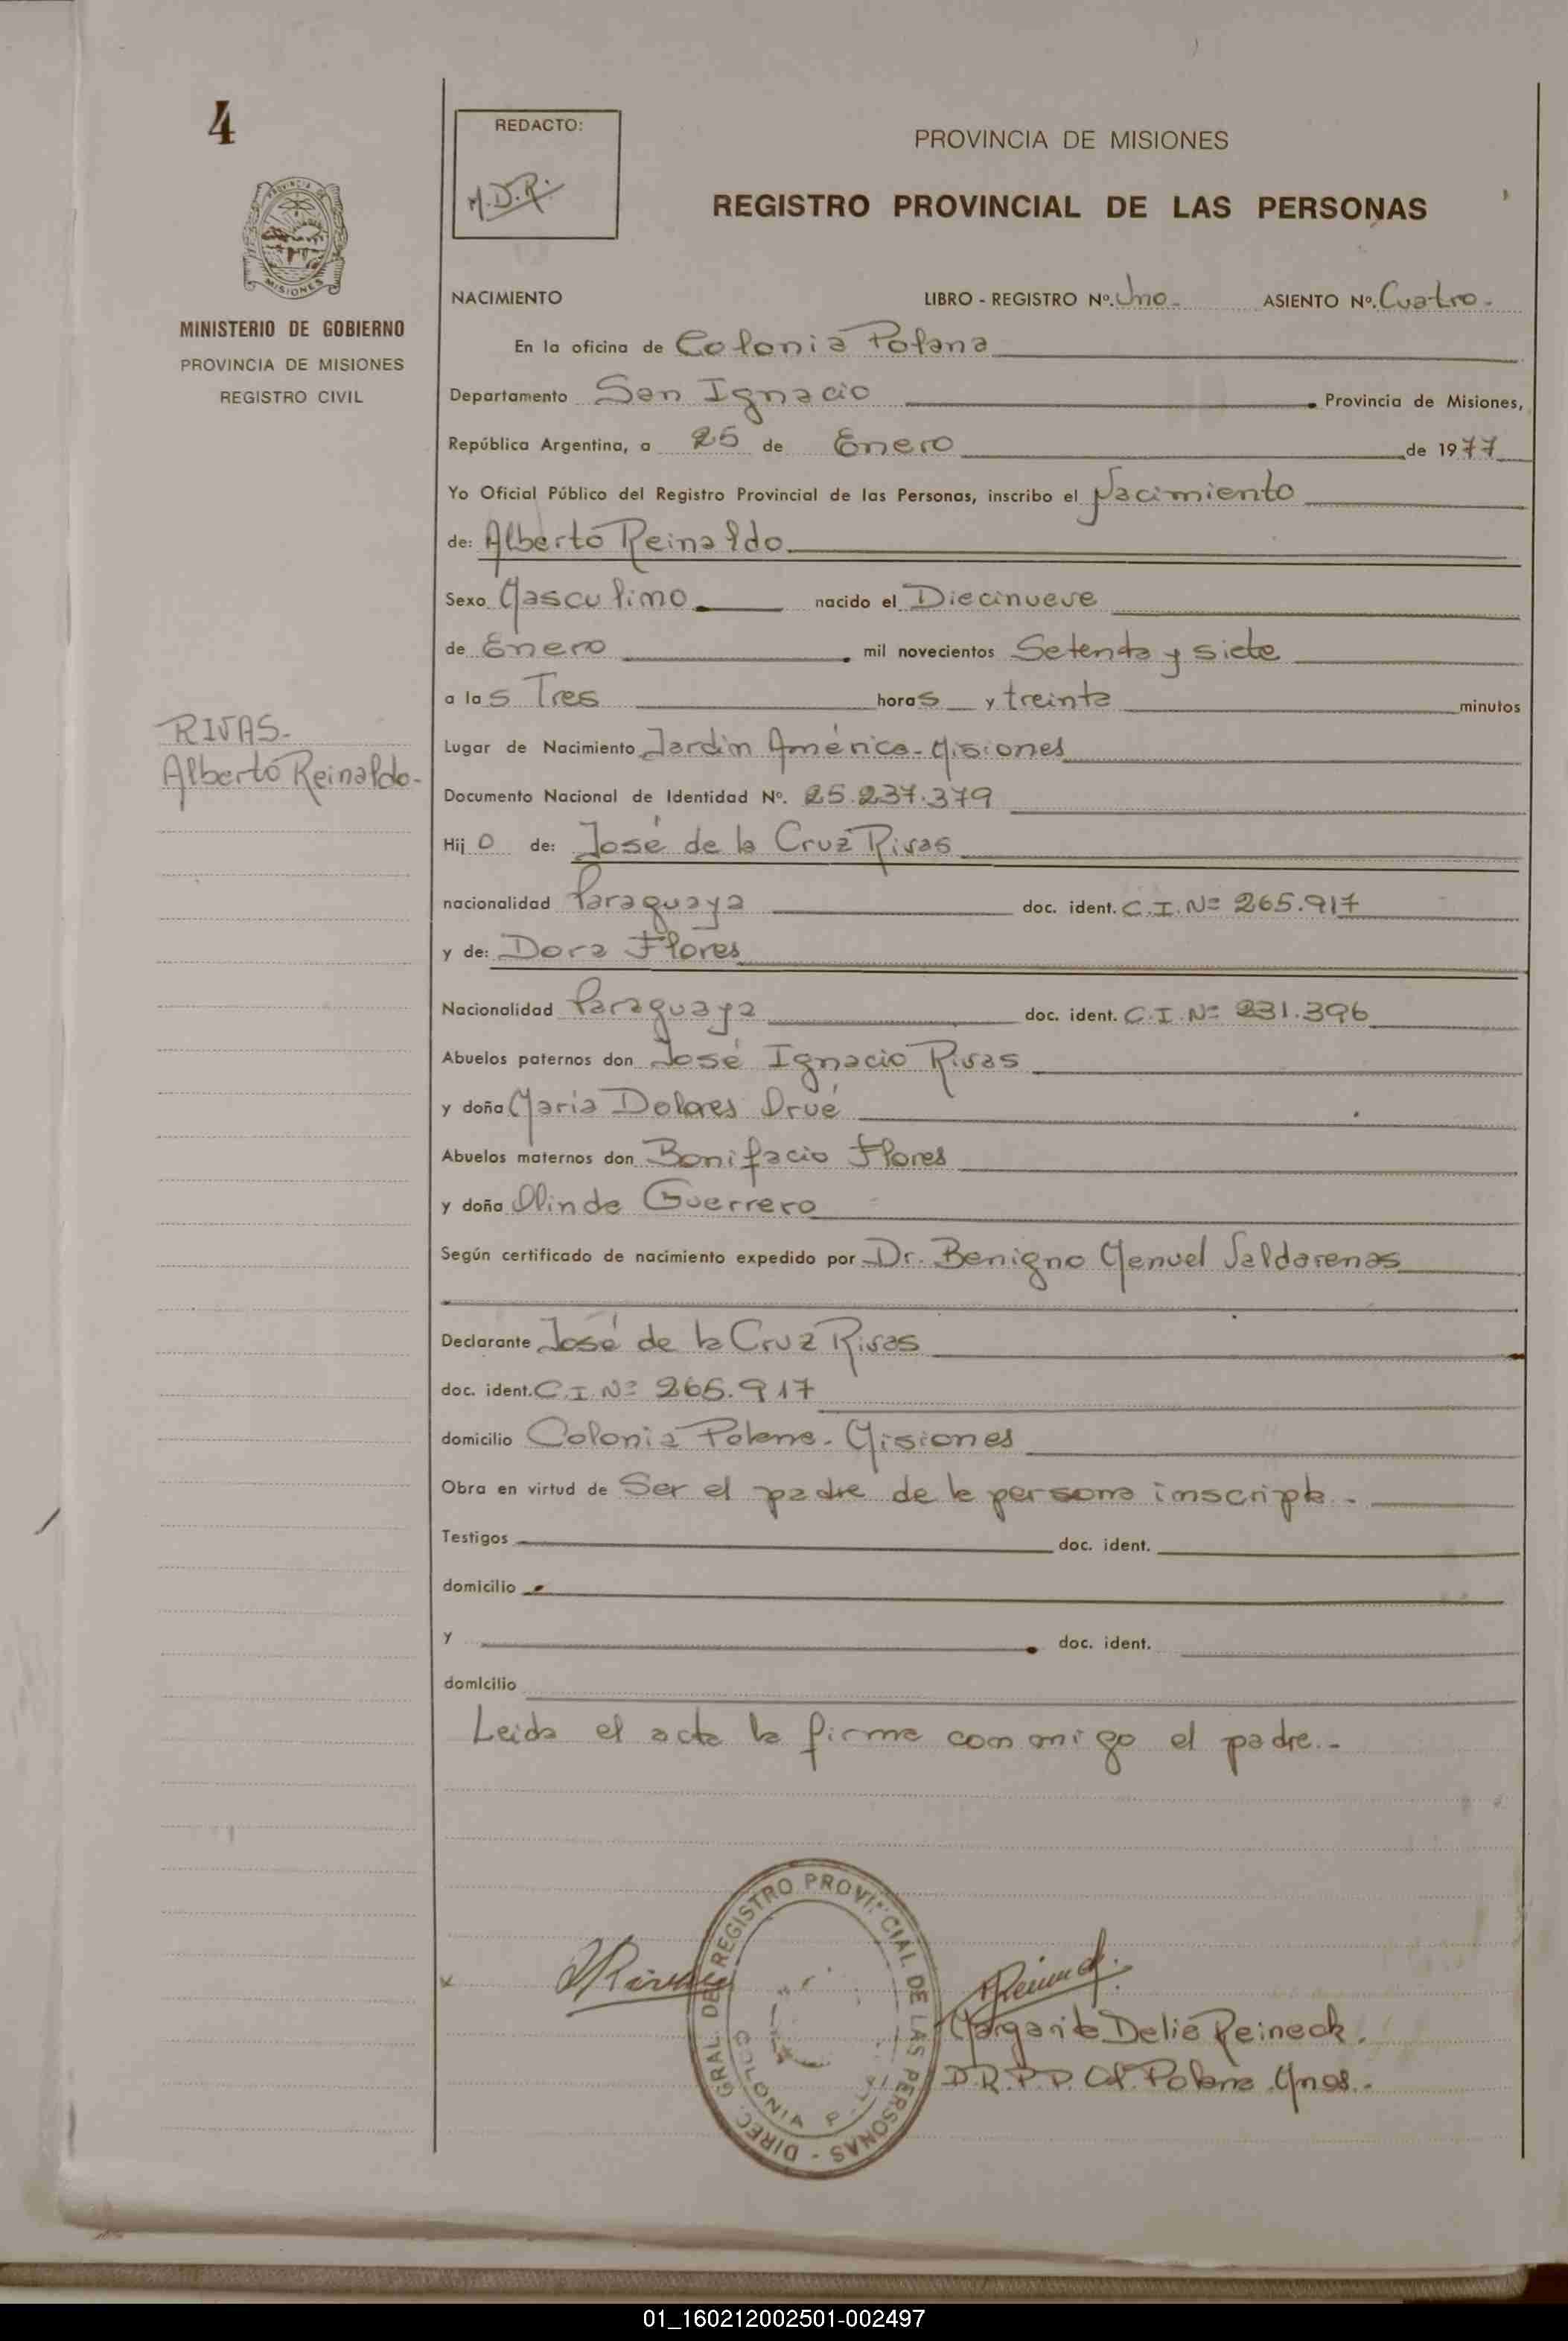 4
REDACTO:
M.D.R.
PROVINCIA DE MISIONES
REGISTRO PROVINCIAL DE LAS PERSONAS
MISIONES
MINISTERIO DE GOBIERNO
PROVINCIA DE MISIONES
REGISTRO CIVIL
NACIMIENTO LIBRO - REGISTRO Nº. Uno - ASIENTO Nº. Cuatro -
En la oficina de Colonia Polana
Departamento San Ignacio Provincia de Misiones,
República Argentina, a 25 de Enero de 1977
Yo Oficial Público del Registro Provincial de las Personas, inscribo el Nacimiento
de: Alberto Reinaldo
Sexo Masculino nacido el Diecinueve
de Enero mil novecientos Setenta y siete
a las Tres horas y treinta minutos
RIVAS-
Alberto Reinaldo-
Lugar de Nacimiento Jardín América - Misiones
Documento Nacional de Identidad Nº. 25.237.379
Hijo de: José de la Cruz Rivas
nacionalidad Paraguaya doc. ident. C.I. Nº 265.917
y de: Dora Flores
Nacionalidad Paraguaya doc. ident. C.I. Nº 231.396
Abuelos paternos don José Ignacio Rivas
y doña María Dolores Orué
Abuelos maternos don Bonifacio Flores
y doña Olinda Guerrero
Según certificado de nacimiento expedido por Dr. Benigno Manuel
Declarante José de la Cruz Rivas
doc. ident. C.I. Nº 265.917
domicilio Colonia Polana - Misiones
Obra en virtud de Ser el padre de la persona inscripta -
Testigos doc. ident.
domicilio
y doc. ident.
domicilio
Leída el acta la firma conmigo el padre.-
Rivas
DIREC. GRAL. DEL REGISTRO PROVINCIAL DE LAS PERSONAS -
COLONIA
Margarita Delia Reineck.
D.R.P.P. Col. Polana Mnes.-
01_160212002501-002497